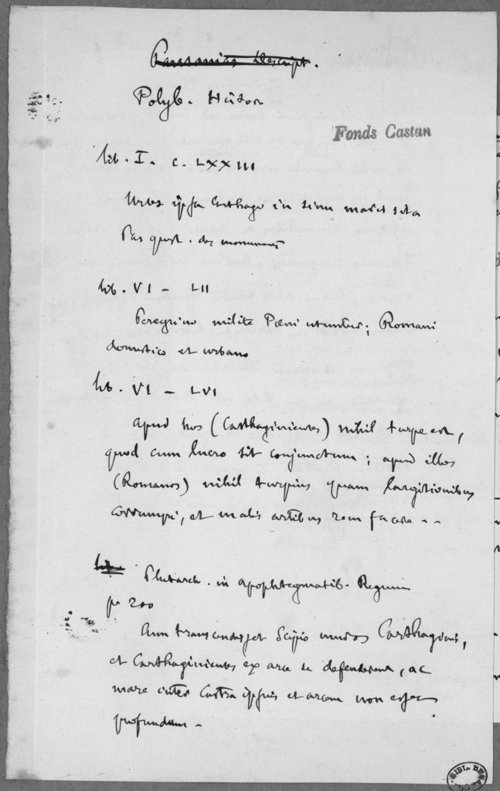 Pausanias descript.
Polyb. Histor
Fonds Castan
lib. I. c. LXXIII
Urbs ipsa Carthago in sinu maris sita
Pas quest. des monuments
lib. VI - LII
Peregrino milite Poeni utuntur; Romani
domestico et urbano
lib. VI - LVI
apud hos (Carthaginienses) nihil turpe est,
quod cum lucro sit conjunctum; apud illos
(Romanos) nihil turpius quam largitionibus
corrumpi, et malis artibus rem facere --
Plutarch. in apophtegmatib. Regum
p. 200
Cum transcendisset Scipio muros Carthaginis,
et Carthaginienses ex arce se defenderent, ac
mare inter castra ipsius et arcem non esset
profundum -